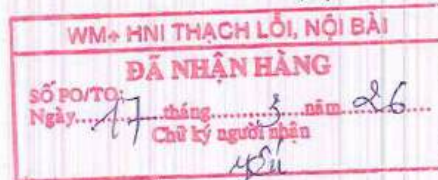 WM+ HNI THẠCH LỖI, NỘI BÀI
ĐÃ NHẬN HÀNG
SỐ PO/TO:
Ngày 17 tháng 3 năm 26
Chữ ký người nhận